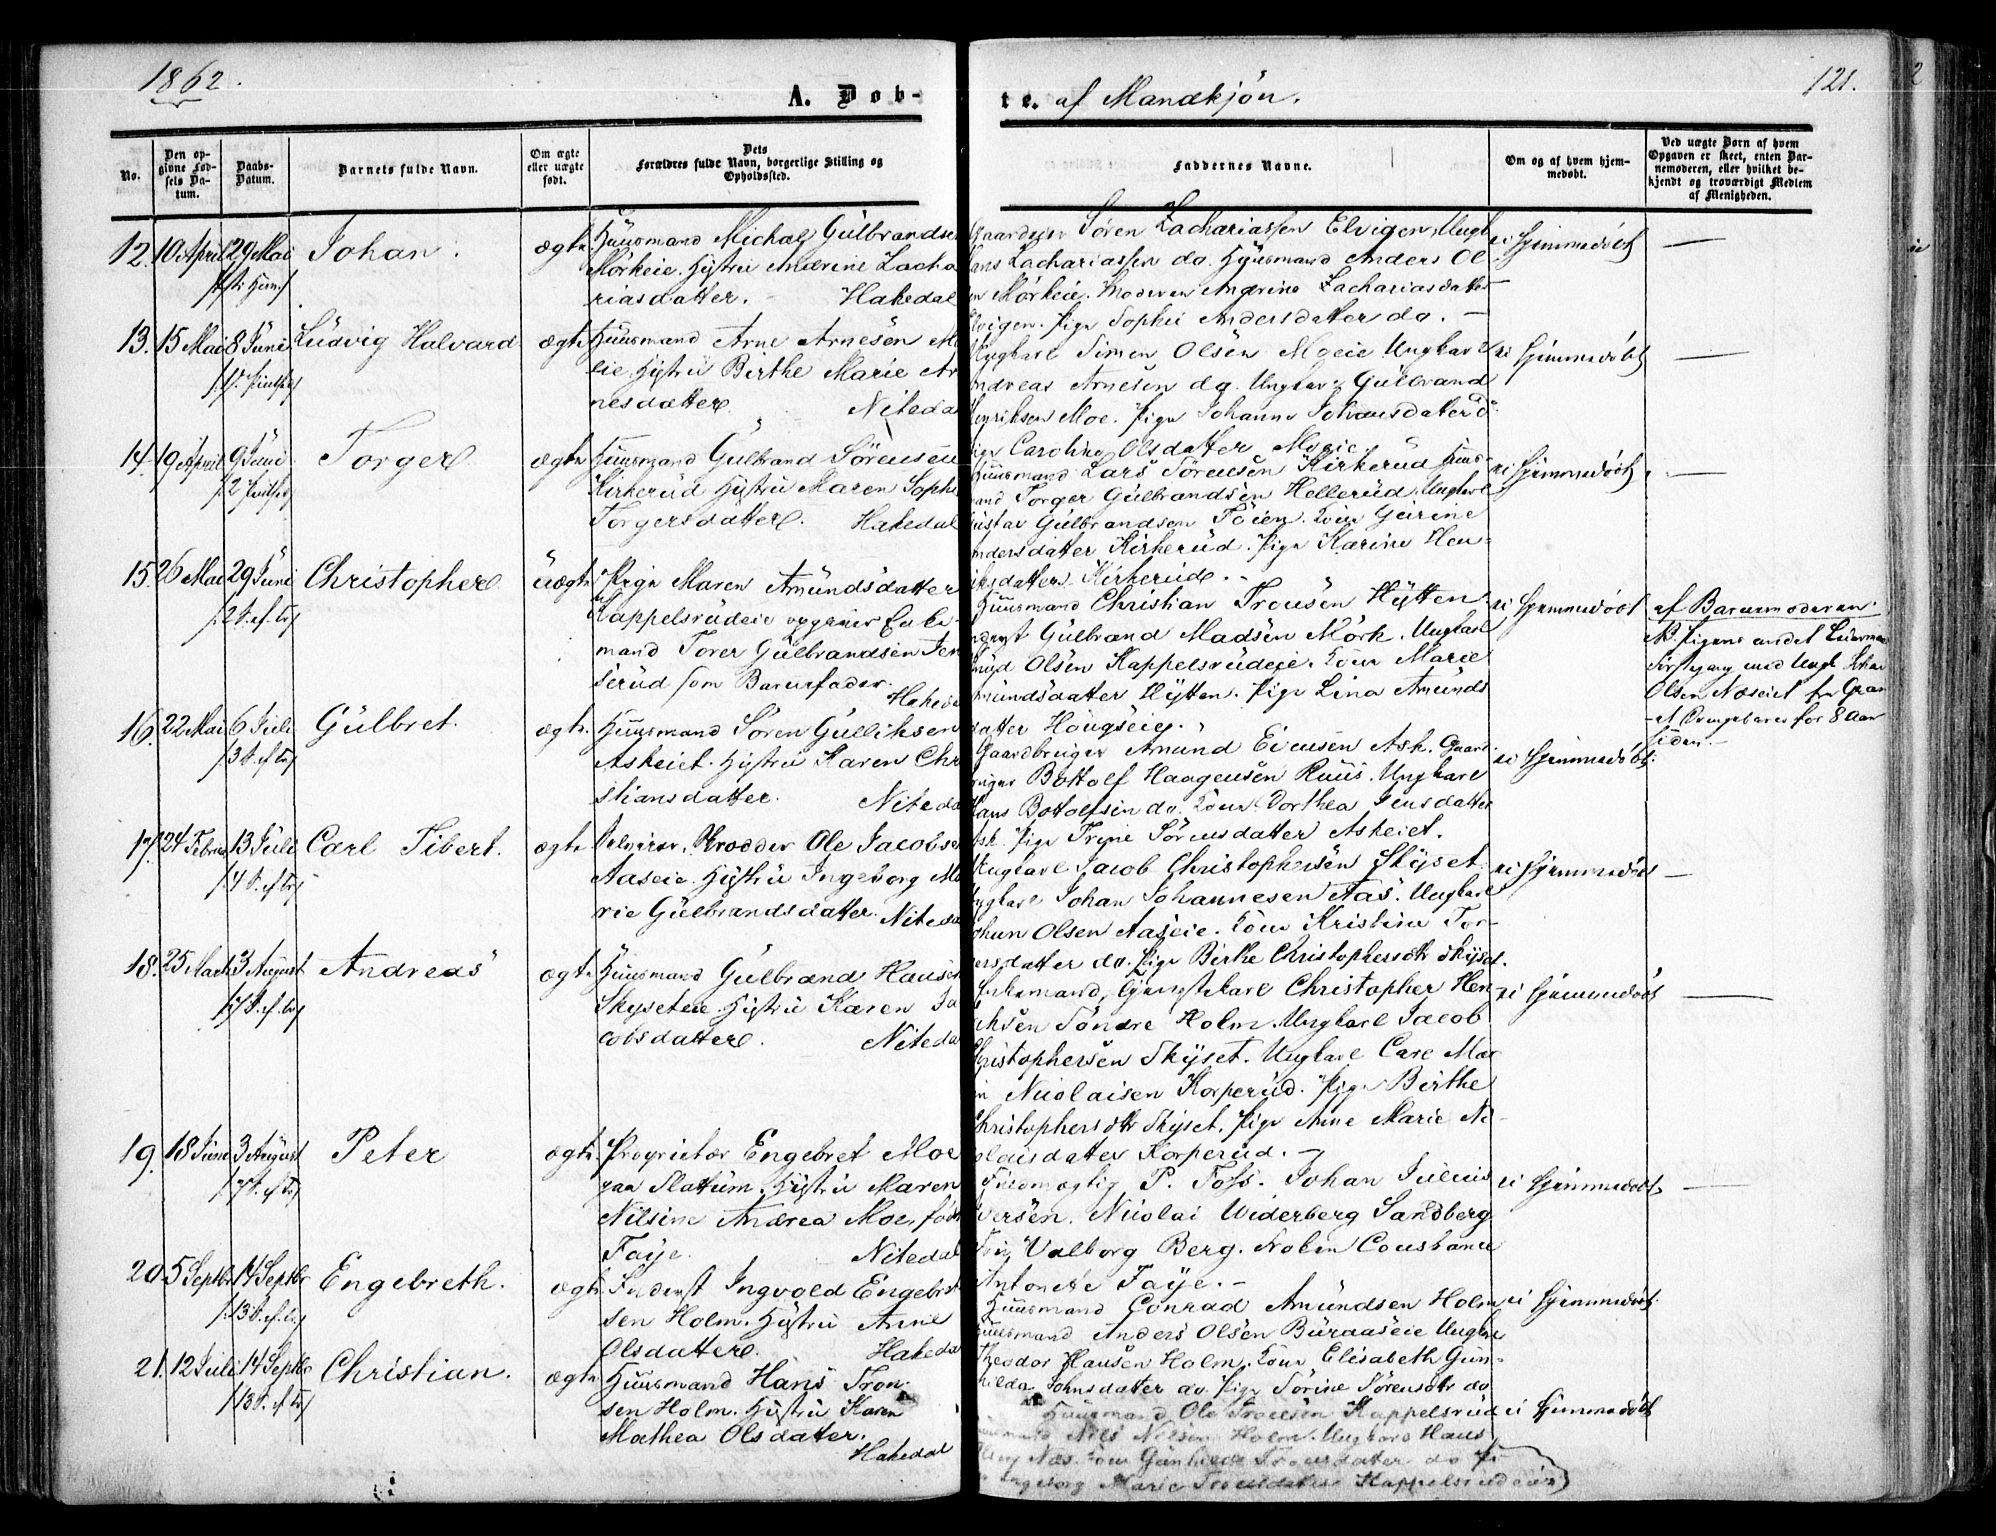 1862.
A. Døb-
te. af Mandkjön.
121.
No.
Den op-
givne Fød-
sels Da-
tum.
Daabs-
Datum.
Barnets fulde Navn.
Om ægte
eller uægte
født.
Dets
Forældres fulde Navn, borgerlige Stilling og
Opholdssted.
Faddernes Navne.
Om og af hvem hjem-
medøbt.
Ved uægte Børn af hvem
Opgaven er skeet, enten Bar-
nemoderen, eller hvilket be-
kjendt og troværdigt Medlem
af Menigheden.
12. 10 April 29 Mai Johan. ægte. Huusmand Michael Gulbrandsen
Mörkeie. Hustru Andrine Zacha
riasdatter. Hakedal
Søren Zachariassen Elvigen, Ungk
Zachariassen do. Huusmand Anders Ol
Mörkeie. Moderen Andrine Zachariasdatter
Elvigen. Pige Sophie Andersdatter do.
ei Hjemmedöbt
13. 15 Mai 8 Juni Ludvig Halvard ægte Huusmand Arne Arnesen Mo
eie. Hustru Birthe Marie Ar
nesdatter. Nitedal
Ungkarl Simen Olsen Moeie Ungkarl
Andreas Arnesen do. Ungkarl Gulbrand
Henriksen Moe. Pige Johanne Johansdatter do
Pige Caroline Olsdatter Moeie
ei Hjemmedöbt
14. 19 April 9 Juni Torger ægte Huusmand Gulbrand Sörensen
Kirkerud Hustru Maren Sophie
Torgersdatter. Hakedal
Huusmand Lars Sörensen Kirkerud Huus-
mand Torger Gulbrandsen Hellerud. Ungkarl
Gustav Gulbrandsen Töien. Kone Gurine
Andersdatter Kirkerud. Pige Karine Hen-
riksdatter Kirkerud.
ei Hjemmedöbt
15. 26 Mai 29 Juni Christopher uægte Pige Maren Amundsdatter
Kappelsrudeie opgiver Enke-
mand Torer Gulbrandsen Jen
serud som Barnefader. Hakedal
Huusmand Christian Tronsen Hytten
Gulbrand Madsen Mörk. Ungkarl
Knud Olsen Kappelsrudeie. Kone Marie
Amundsdatter Hytten. Pige Lina Amunds
datter Höugseie.
ei Hjemmedöbt
af Barnemoderen.
NB. Pigens andet Leiermaal
Förstegang med Ungk Johan
Olsen Næseiet fra Gran
for 8 Aar
siden.
16. 22 Mai 6 Juli Gulbret. ægte. Huusmand Sören Gulliksen
Askeiet. Hustru Karen Chri
stiansdatter. Nitedal
Gaardbruger Amund Evensen Ask. Gaard
bruger Bottolf Haagensen Ruus. Ungkarl
Hans Bottolfsen do. Kone Dorthea Jensdatter
Ask. Pige Trine Sörensdatter Askeiet.
ei Hjemmedöbt.
17. 24 Febr 13 Juli Carl Sibert. ægte Ole Jacobsen
Aaseie. Hustru Ingeborg Ma
rie Gulbrandsdatter. Nitedal
Ungkarl Jacob Christophersen Skyset
Ungkarl Johan Johannesen Aas. Ungkarl
Johan Olsen Aaseie. Kone Kristine Tor-
gersdatter do. Pige Birthe Christophersdtr Skyset.
ei Hjemmedöbt
18. 25 Marts 3 August Andreas ægte Huusmand Gulbrand Hansen
Skyseteie. Hustru Karen Ja
cobsdatter. Nitedal
Enkemand, Christopher Hen
riksen Söndre Holm. Ungkarl Jacob
Christophersen Skyset. Ungkarl Carl Mar
tin Nicolaisen Korperud. Pige Birthe
Christophersdtr Skyset. Pige Anne Marie Ni-
colaisdatter Korperud.
ei Hjemmedöbt
19. 18 Juni 3 August Peter ægte. Proprietær Engebret Moe
paa Slattum. Hustru Maren
Nilsine Andrea Moe, födt
Faye. Nitedal
Fuldmægtig P. Foss. Johan Julius
Iversen. Nicolai Widerberg Sandberg
Valborg Berg. Froken Constance
Antonette Faye.
ei Hjemmedöbt
20. 5 Septbr 14 Septbr Engebreth. ægte Inderst Ingvold Engebret
sen Holm. Hustru Anne
Olsdatter. Hakedal
Huusmand Conrad Amundsen Holm
Huusmand Anders Olsen Buraaseie Ungkarl
Theodor Hansen Holm. Kone Elisabeth Gun-
hilda Johnsdatter do. Pige Sörine Sörensdtr do
ei Hjemmedöbt.
21. 12 Juli 14 Septbr Christian. ægte Huusmand Hans Tron-
sen Holm. Hustru Karen
Mathea Olsdatter.
Hakedal
Huusmand Ole Troelsen Kappelsrud
Huusmand Nils Nilsen Holm. Ungkarl Hans
Næs. Kone Gunhilde Tronsdatter do Pi
ge Ingeborg Marie Tronsdatter Kappelsrudeie
ei Hjemmedöbt